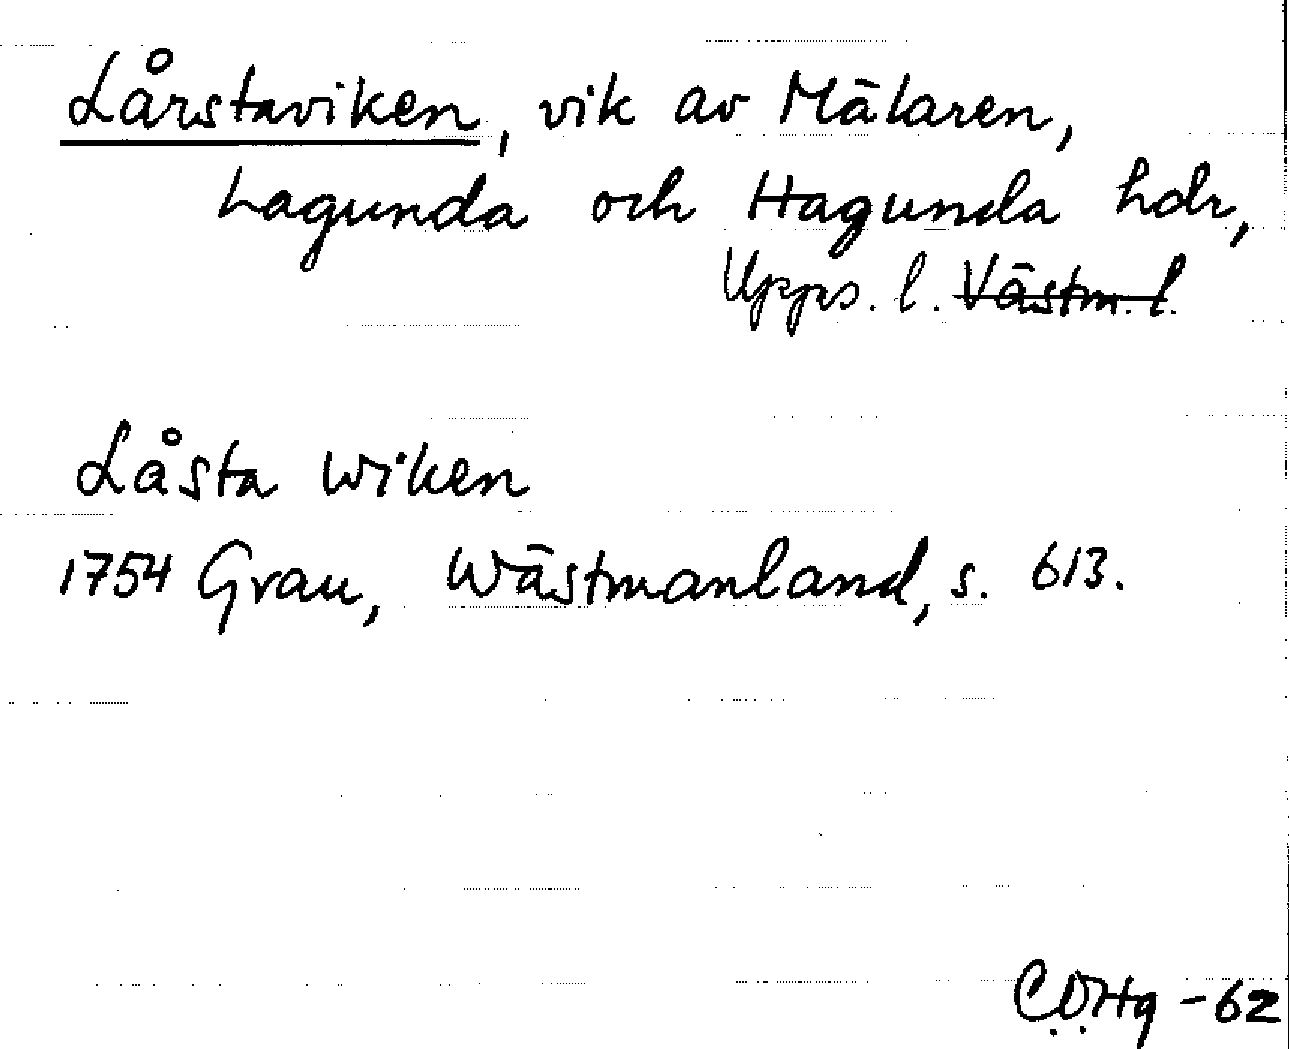 Lårstaviken, vik av Mälaren,
Lagunda och Hagunda hdr,
Upps. l. Västm. l.
Låsta Wiken
1754 Grau, Wästmanland, s. 613.
-62